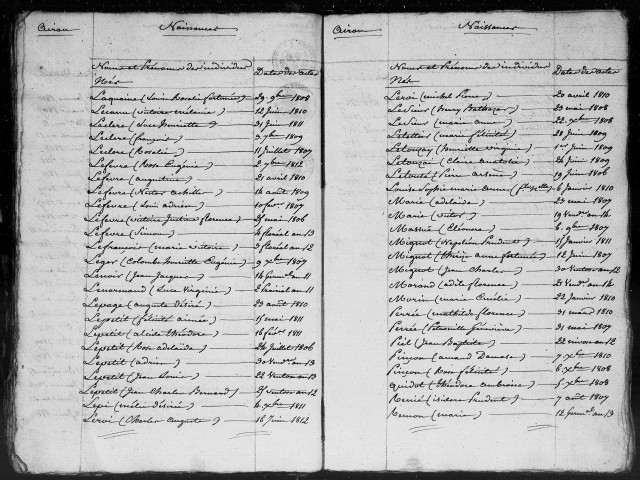 Airou Naissances
Noms et Prénoms des individus Dates des actes
Nés
Laquaine (Louis Rosali fortuné) 29 9bre 1808
Lecarne (victoire mélanie) 12 Juin 1810
Leclerc (Luce henriette) 21 Juin 1811
Leclerc (françoise) 3 7bre 1809
Leclerc (Rosalie) 11 Juillet 1807
Lefevre (Rose Eugénie) 2 7bre 1812
Lefevre (augustine) 21 avril 1810
Lefevre (Nestor achille) 14 août 1809
Lefevre (Loui adrien) 10 fevr 1807
Lefevre (victoire Justine florence) 25 mai 1806
Lefevre (Simon) 4 floréal an 13
Lefrançois (marie victoire) 3 floréal an 12
Leger (Colombe henriette Eugénie) 9 Xbre 1807
Lenoir (Jean Jacques) 14 germal an 11
Lenormand (Luce Virginie) 2 prairial an 11
Lepage (auguste désiré) 23 août 1810
Lepetit (félicité aimée) 15 mai 1811
Lepetit (alcide théodore) 16 févr 1811
Lepetit (Rose adelaïde) 24 Juillet 1806
Lepetit (adrien) 30 Vendre an 13
Lepetit (Jean Louis) 22 Ventose an 13
Lepetit (Jean Charles Bernard) 25 ventose an 12
Lepi (mélie désirée) 4 Xbre 1811
Leroi (Charles auguste) 16 Juin 1812
Airou Naissances
Noms et Prénoms des individus Dates des actes
Nés
Leroi (michel Pierre) 20 avril 1810
LeSieur (henry Balthazar) 23 mai 1808
LeSieur (marie anne) 22 Xbre 1808
Letellier (marie félicité) 21 Juin 1809
Letouzay (henriette virginie) 1er Juin 1809
Letouzai (Claire anatolie) 24 Juin 1809
Letouzé (Pierre arsène) 19 Juin 1806
Louise Sophie marie anne 6 Janvier 1810
Marie (adelaide) 23 mai 1807
Marie (victor) 19 Vendre an 14
Massue (Eléonore) 6 9bre 1807
Miquot (Napoléon Prudent) 15 Janvier 1811
Miquot (anne fortunée) 12 Juin 1807
Miquot (Jean Charles) 30 Ventose an 12
Morand (adèle florence) 21 Vendre an 14
Morin (marie Emélie) 22 Janvier 1810
Perrée (mathilde florence) 31 mars 1810
Perrée (Geneviève) 31 mai 1807
Piel (Jean Baptiste) 22 nivose an 12
Pinçon (amand Damase) 7 Xbre 1810
Pinçon (Rose félicité) 6 Xbre 1808
Quidot (théodore ambroise) 5 Xbre 1808
Renié (isidore Prudent) 7 août 1807
Renon (marie) 12 germal an 13